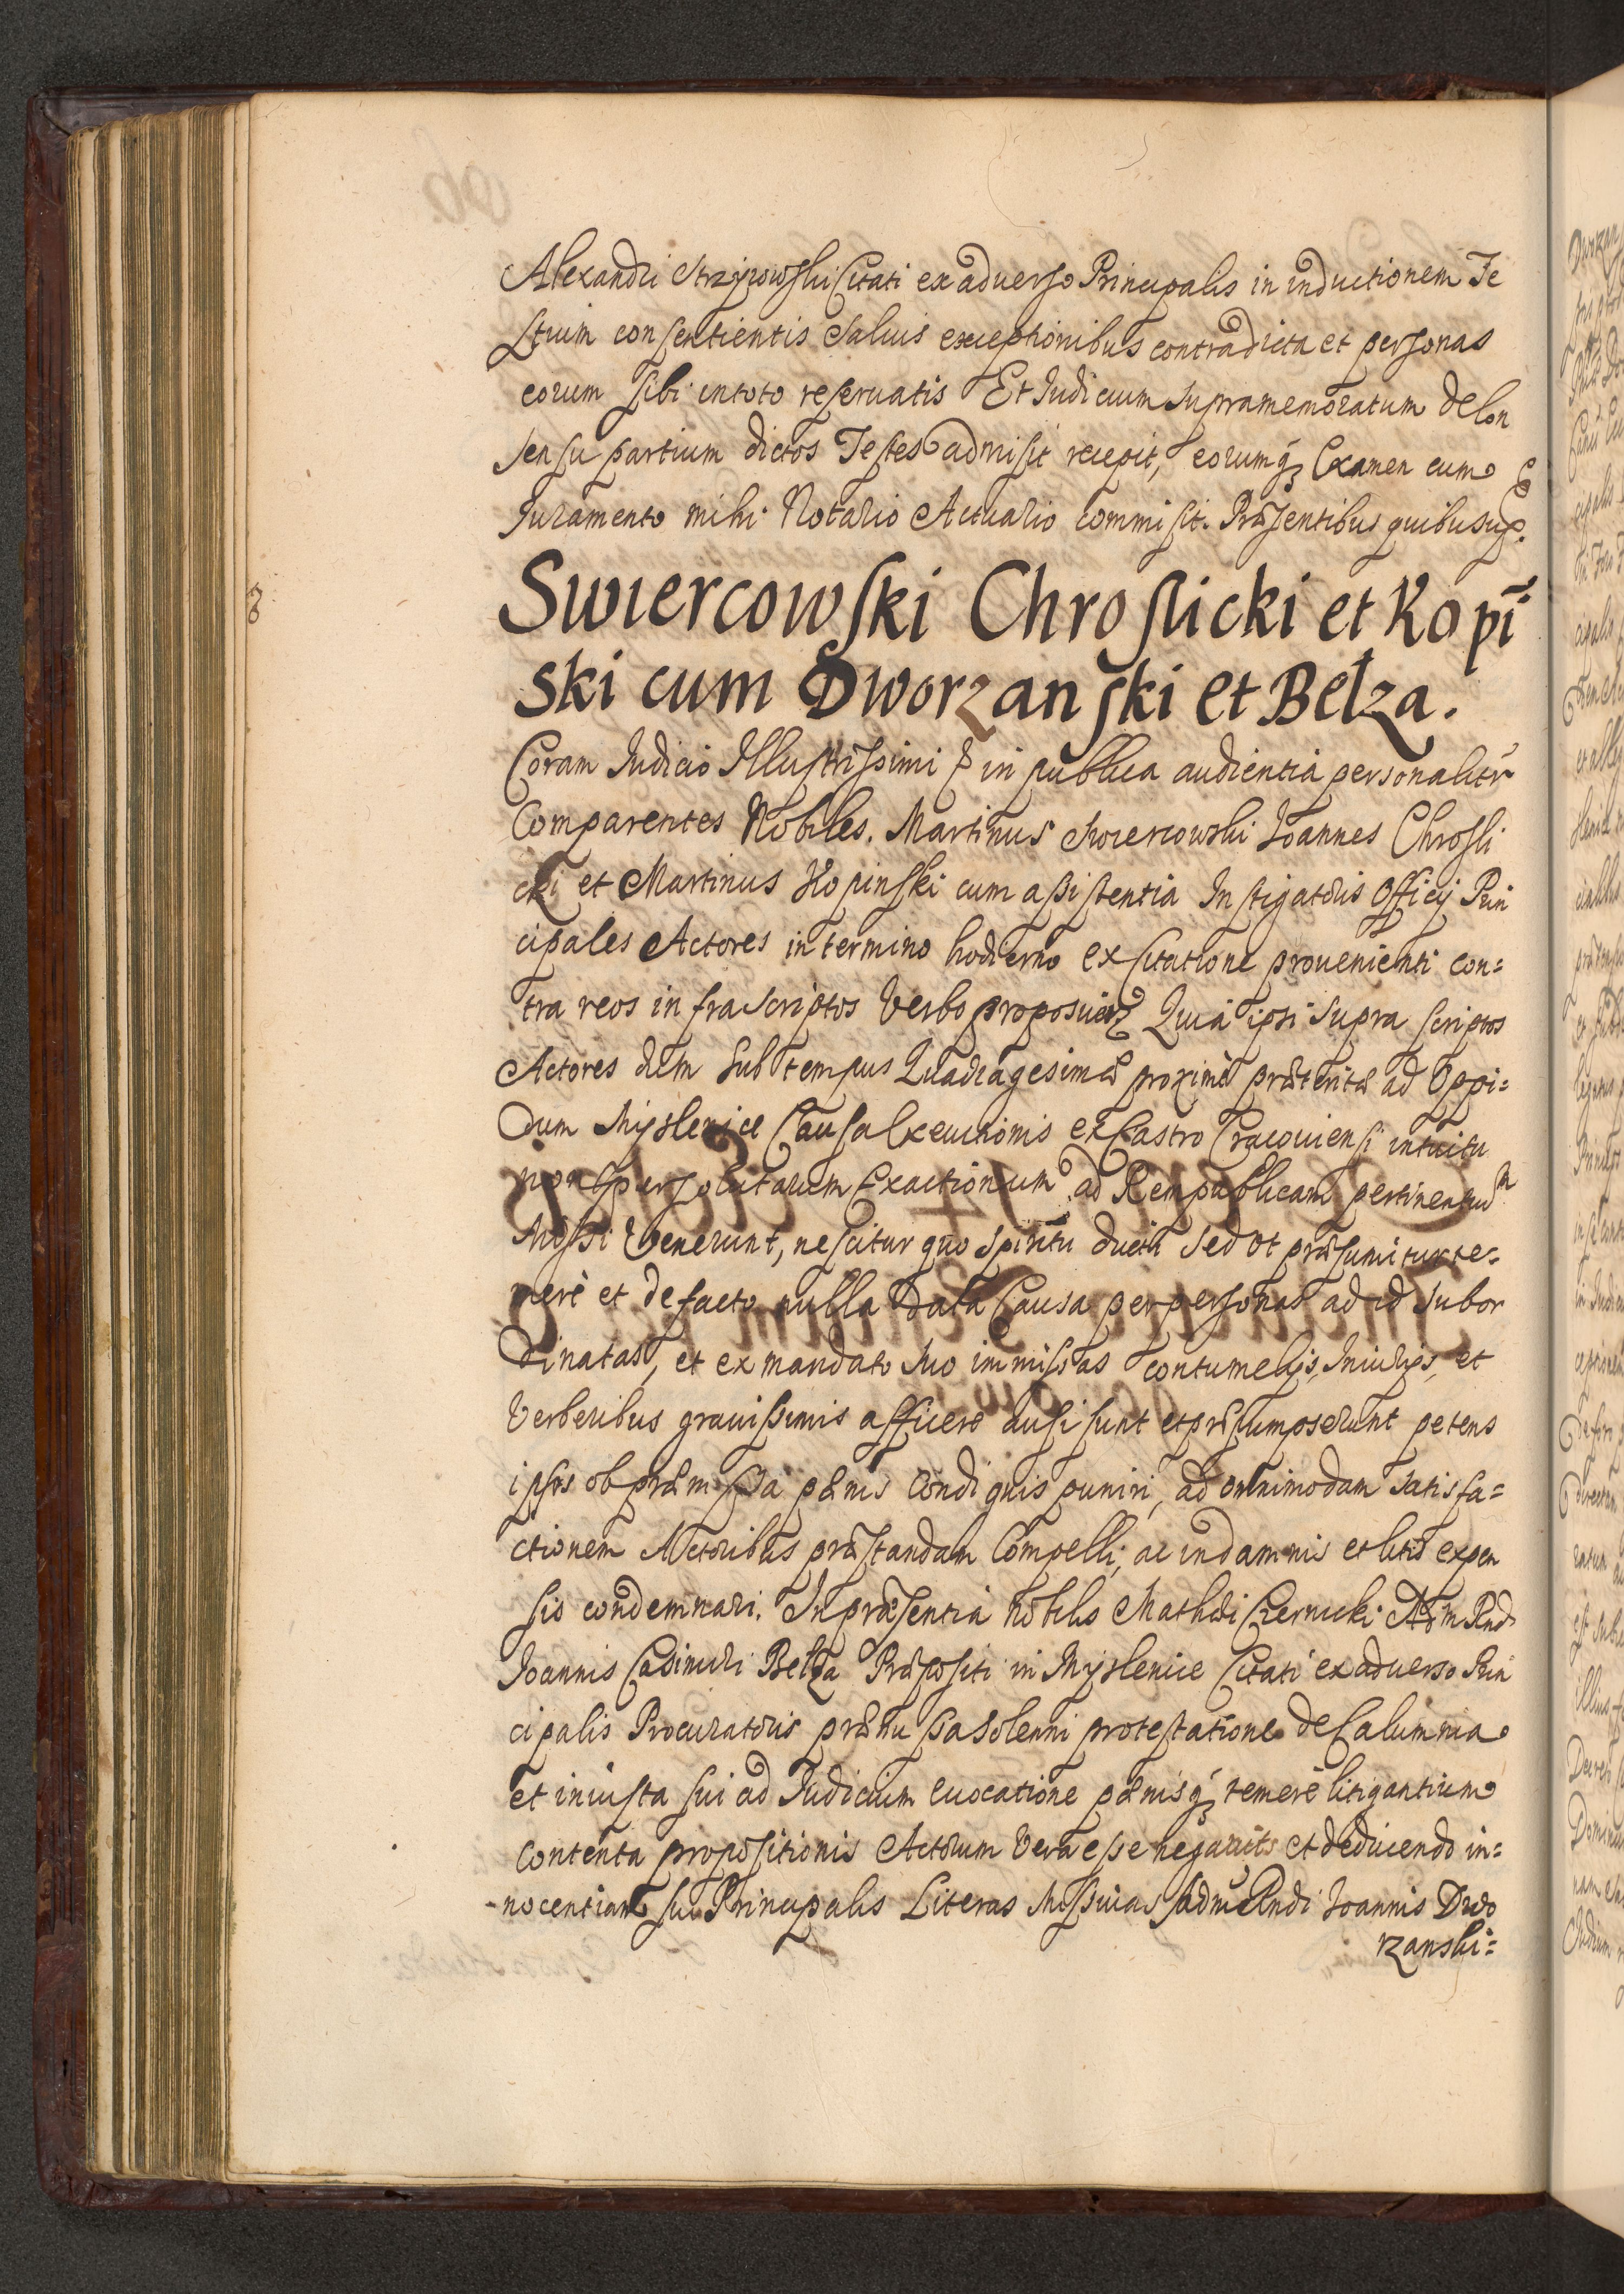 Alexandri Strzyzowski Citati ex aduerso Principalis in inductionem Te
stium consentientis saluis exceptionibus contra dicta et personas
eorum sibi intoto reseruatis Et Iudicium supramemoratum de Con
sensu partium dictos Testes admisit recepit, eorumq₃ Examen cum
Iuramento mihi Notario Actuario commisit. Præsentibus quibus sup.
Swiercowski Chroslicki et Kopī
ski cum Dworzanski et Belza.
Coram Iudicio Illustrissimi & in publica audientia personalitr̄
Comparentes Nobiles. Martinus Swiercowski Ioannes Chrosli
cki et Martinus Kopinski cum assistentia Instigatoris Officij Prin
cipales Actores in termino hodierno ex Citatione prouenienti con=
tra reos infrascriptos Verbo proposuerūt Quia ipsi supra scriptos
Actores dum sub tempus Quadragesimæ proximæ præteritæ ad Oppi=
dum Myslenice Causa Executionis ex Castro Cracouiensi intuitu
non persolutarum Exactionum ad Rempublicam pertinentium
Missi Venerunt, nescitur quo spiritu ducti sed ut præsumitur te=
merè et de facto nulla data Causa per personas ad id subor
dinatas, et ex mandato suo immissas contumelijs, Iniurijs, et
Verberibus grauissimis afficere ausi sunt et præsumpserunt petens
ipsos ob præmissa pænis condignis puniri, ad omnimodam satisfa=
ctionem Actoribus præstandam Compelli, ac in damnis et litis expen
sis condemnari. In præsentia Nobilis Mathæi Czernicki Adm Rndi
Ioannis Casimiri Belza Præpositi in Myslenice Citati ex aduerso Prin
cipalis Procuratoris præmissa solenni protestatione de Calumnia
et iniusta sui ad Iudicium euocatione pænisq₃ temerè litigantium
contenta propositionis Actorum Vera esse negauits et deducendo in=
nocentiam sui Principalis Literas Missiuas Adm Rndi Ioannis Dwo
rzanski=